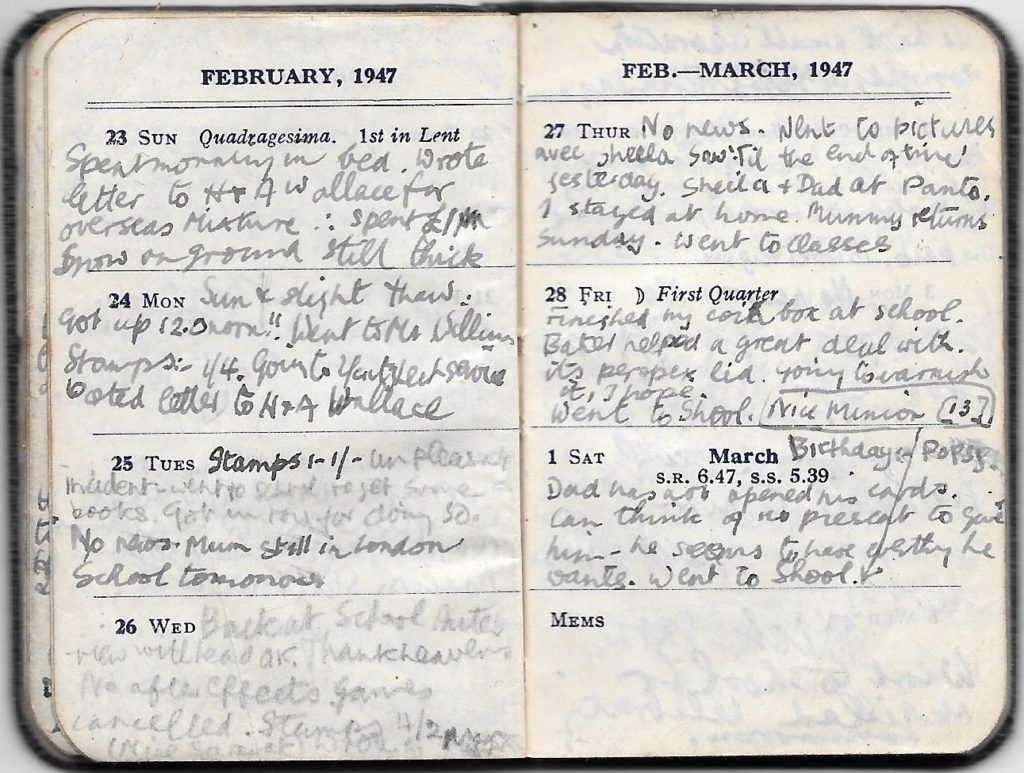 FEBRUARY, 1947
23 SUN Quadragesima. 1st in Lent
Spent morning in bed. Wrote
letter to H & A Wallace for
overseas Mixture ∴ spent £1
Snow on ground still thick
24 MON Sun & slight thaw.
Got up 12.0 noon!! Went to Mr
Stamps:- 1/4. Going to
Posted letter to H & A Wallace
25 TUES Stamps:- 1/- unpleasant
incident - went to school to get some
books. Got in row for doing so.
No news. Mum still in London
School tomorrow
26 WED Back at School Inter
-view with Head OK. Thank heavens
No after effects. Games
cancelled. Stamps 4/2
FEB.—MARCH, 1947
27 THUR No news. Went to pictures
avec Sheila saw 'Til the end of time'
yesterday. Sheila & Dad at Panto.
I stayed at home. Mummy returns
Sunday. Went to classes
28 FRI ☽ First Quarter
Finished my coil box at school.
helped a great deal with.
its perspex lid. Going to varnish
it, I hope.
Went to Shool. Nice Minion [13]
1 SAT March Birthday:- Pops
S.R. 6.47, S.S. 5.39
Dad has not opened his cards.
Can think of no present to give
him - he seems to have everthing he
wants. Went to Shool.
MEMS